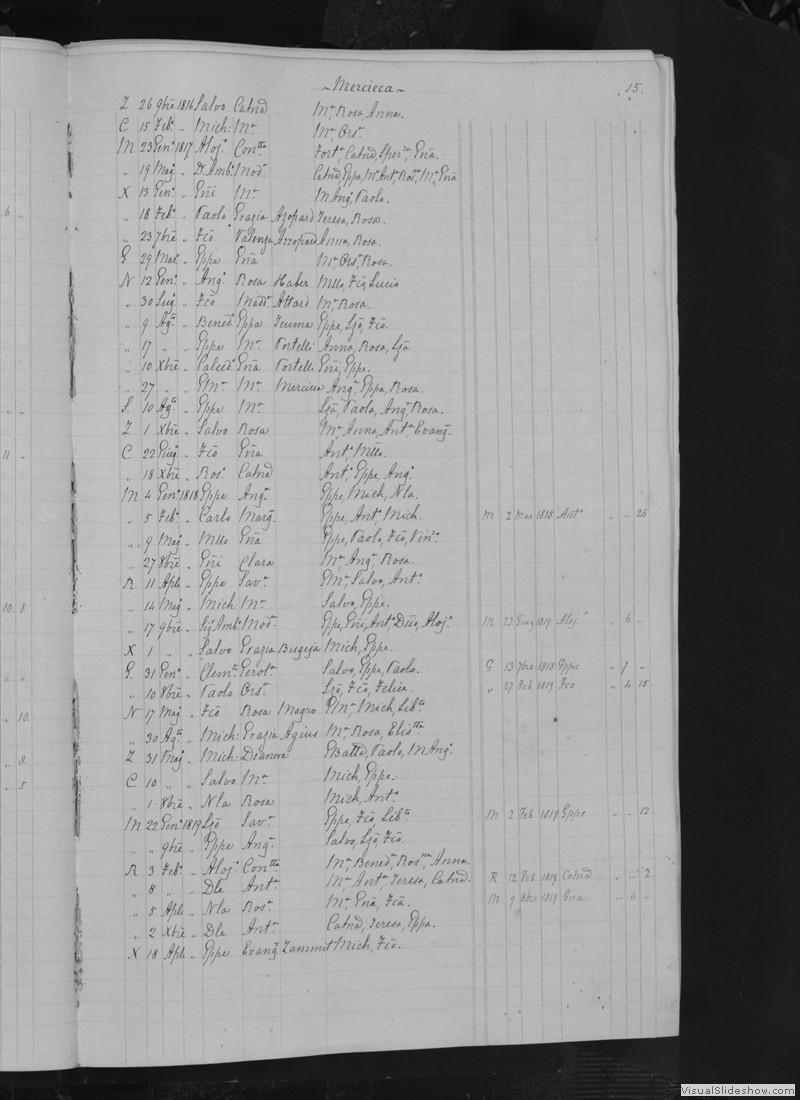 ~ Mercieca ~ 15.
Z 26 9bre 1816 Salvo Catnd Ma, Rosa Anna.
C 15 Feb. „ Mich: Ma Ma, Ors.
M 23 Gen. 1817 Aloj. Contta Forta, Catnd, Spera, Gña.
„ 19 Mag. „ D. Amb. Moda Catnd, Eppa, Ma, Ant, Rosa, Ma, Gña
X 13 Gen. „ Gñi Ma M Ang, Paolo.
6 „ 18 Feb. „ Paolo Grazia Azopard Teresa, Rosa.
„ 23 7bre „ Fco Valenza Azzopard Anna, Rosa.
G 29 Mar. „ Gppe Gña Ma, Orsa, Rosa.
N 12 Gen. „ Ang. Rosa Haber Mtto, Fco, Lucio
„ 30 Lug. „ Fco Mada Attard Ma, Rosa.
„ 9 Agto „ Bened. Gppa Teuma Gppe, Ljo, Fco.
„ 17 „ „ Gppe Ma Portelli Anna, Rosa, Lja
„ 10 Xbre „ Calced. Gña Portelli Gñi, Gppe.
„ 27 „ „ GMa Ma Mercieca Anga, Gppa, Rosa.
S. 10 Agto „ Gppe Ma Lja, Paola, Anga, Rosa.
Z 1 Xbre „ Salvo Rosa Ma, Anna, Anta, Evang.
11 C 22 Giug. „ Fco Gña Anto, Mtto.
„ 18 Xbre „ Ros. Catnd Anto, Gppe, Ang.
M 4 Gen. 1818 Gppe Anga Gppe, Mich, Nla.
„ 5 Feb. „ Carlo Marg. Gppe, Anto, Mich. M 2 Mar 1818 Anto „ „ 26
„ 9 Mag. „ Mtto Gña Gppe, Paolo, Fco, Vinc.
„ 27 8bre „ Gñi Clara Ma, Anga, Rosa.
R 11 Aple „ Gppe Sava GMa, Salvo, Anto
10 8 „ 14 Mag. „ Mich: Ma Salvo, Gppe.
„ 17 9bre „ Sig Amb. Moda Gppe, Gñi, Anto, Aloj. M 23 Giug 1819 Aloj. „ 6 „
X 1 „ „ Salvo Grazia Bugeja Mich, Gppe.
G. 31 Gen. „ Clem. Salvo, Gppe, Paolo. G 13 7bre 1818 Gppe „ 7 „
„ 10 8bre „ Paolo Orsa Ljo, Fco, Felice. „ 27 Feb 1819 Fco „ 4 15
10. N 17 Mag. „ Fco Rosa Magro GMa, Mich, Libta
„ 30 Agto „ Mich: Grazia Agius Ma, Rosa, Elistta
8. Z 31 Mag. „ Mich: Dianora GBatta, Paolo, M Ang.
5 C 10 „ „ Salvo Ma Mich, Gppe.
„ 1 8bre „ Nla Rosa Mich, Anto
M 22 Gen. 1819 Ljo Sava Gppe, Fco, Libta M 2 Feb 1819 Gppe „ „ 12
„ „ 9bre „ Gppe Anga Salvo, Ljo, Fco.
R 3 Feb. „ Aloj. Contta Ma, Bened, Rosna, Anna.
„ 8 „ „ Dle Anta Ma, Anta, Teresa, Catnd. R 12 Feb 1819 Catnd „ „ 2
„ 5 Aple „ Nla Rosa Ma, Gña, Fca. M 9 8bre 1819 Gña „ 6 „
„ 2 Xbre „ Dle Anta Catnd, Teresa, Gppa.
X 18 Aple „ Gppe Evang. Zammit Mich, Fco.
VisualSlideshow.com